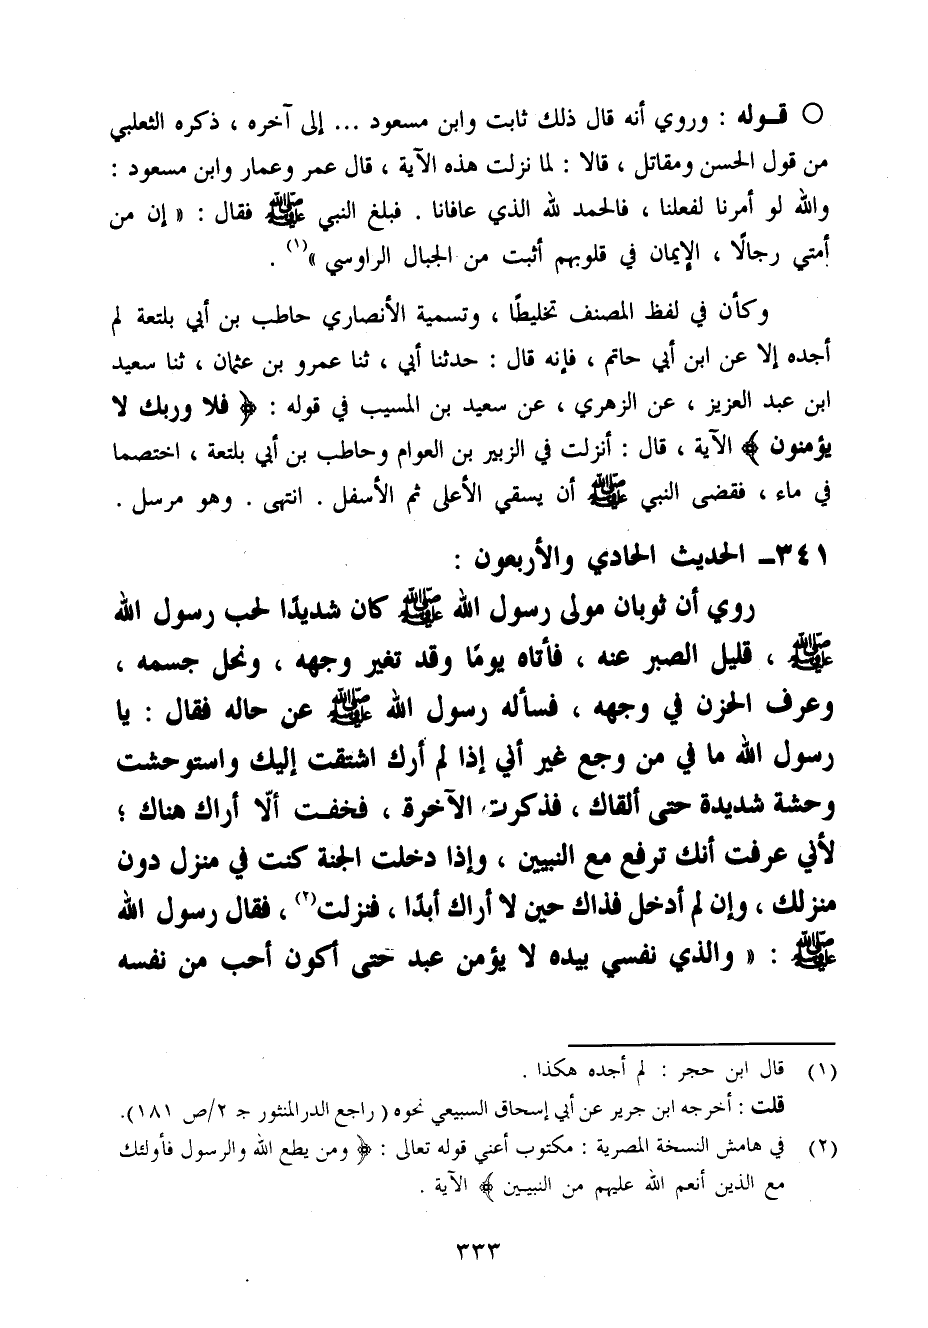 ○ قـوله : وروي أنه قال ذلك ثابت وابن مسعود ... إلى آخره ، ذكره الثعلبي
من قول الحسن ومقاتل ، قالا : لما نزلت هذه الآية ، قال عمر وعمار وابن مسعود :
والله لو أمرنا لفعلنا ، فالحمد لله الذي عافانا . فبلغ النبي ﷺ فقال : « إن من
أمتي رجالًا ، الإيمان في قلوبهم أثبت من الجبال الرواسي »(١) .
وكأن في لفظ المصنف تخليطًا ، وتسمية الأنصاري حاطب بن أبي بلتعة لم
أجده إلا عن ابن أبي حاتم ، فإنه قال : حدثنا أبي ، ثنا عمرو بن عثمان ، ثنا سعيد
ابن عبد العزيز ، عن الزهري ، عن سعيد بن المسيب في قوله : ﴿ فلا وربك لا
يؤمنون ﴾ الآية ، قال : أنزلت في الزبير بن العوام وحاطب بن أبي بلتعة ، اختصما
في ماء ، فقضى النبي ﷺ أن يسقي الأعلى ثم الأسفل . انتهى . وهو مرسل .
٣٤١ـ الحديث الحادي والأربعون :
روي أن ثوبان مولى رسول الله ﷺ كان شديدًا لحب رسول الله
ﷺ ، قليل الصبر عنه ، فأتاه يومًا وقد تغير وجهه ، ونحل جسمه ،
وعرف الحزن في وجهه ، فسأله رسول الله ﷺ عن حاله فقال : يا
رسول الله ما في من وجع غير أني إذا لم أرك اشتقت إليك واستوحشت
وحشة شديدة حتى ألقاك ، فذكرت الآخرة ، فخفت ألّا أراك هناك ؛
لأني عرفت أنك ترفع مع النبيين ، وإذا دخلت الجنة كنت في منزل دون
منزلك ، وإن لم أدخل فذاك حين لا أراك أبدًا ، فنزلت(٢) ، فقال رسول الله
ﷺ : « والذي نفسي بيده لا يؤمن عبد حتى أكون أحب من نفسه
(١) قال ابن حجر : لم أجده هكذا .
قلت : أخرجه ابن جرير عن أبي إسحاق السبيعي نحوه ( راجع الدر المنثور جـ ٢/ص ١٨١).
(٢) في هامش النسخة المصرية : مكتوب أعني قوله تعالى : ﴿ ومن يطع الله والرسول فأولئك
مع الذين أنعم الله عليهم من النبيـين ﴾ الآية .
٣٣٣